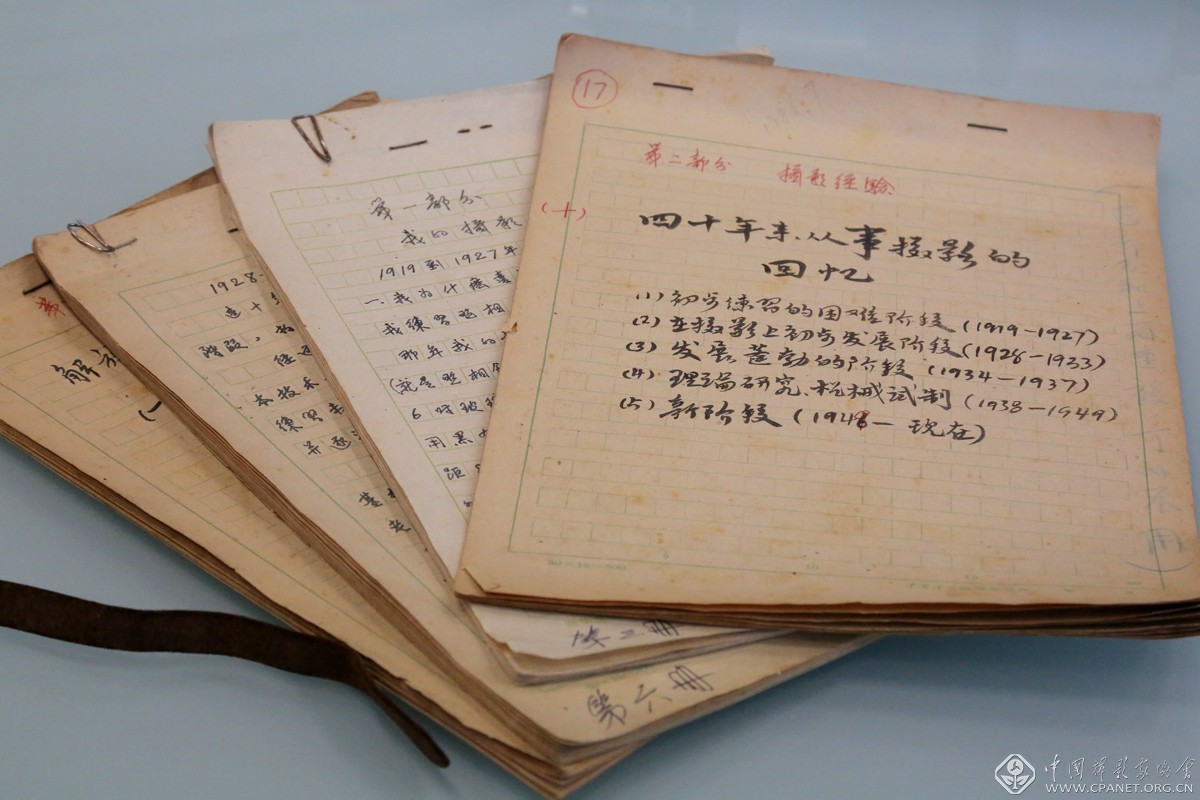 17
第二部分 摄影经验
(十)
四十年来从事摄影的
回忆
(1) 初步练习的困难阶段 (1919—1927)
(2) 在摄影上初步发展阶段 (1928—1933)
(3) 发展蓬勃的阶段 (1934—1937)
(4) 理论研究、机械试制 (1938—1949)
(5) 新阶段 (1948—现在)
第一部分
我的摄影
1919到1927年
一.我为什麽喜
我练习照相
那年我的
(就是照相
6时被
用黑
距
第二册
1928
这十
阶段,
经过
本技术
练习
并逐
基
第六册
第
解放
(一
中国摄影家协会
WWW.CPANET.ORG.CN